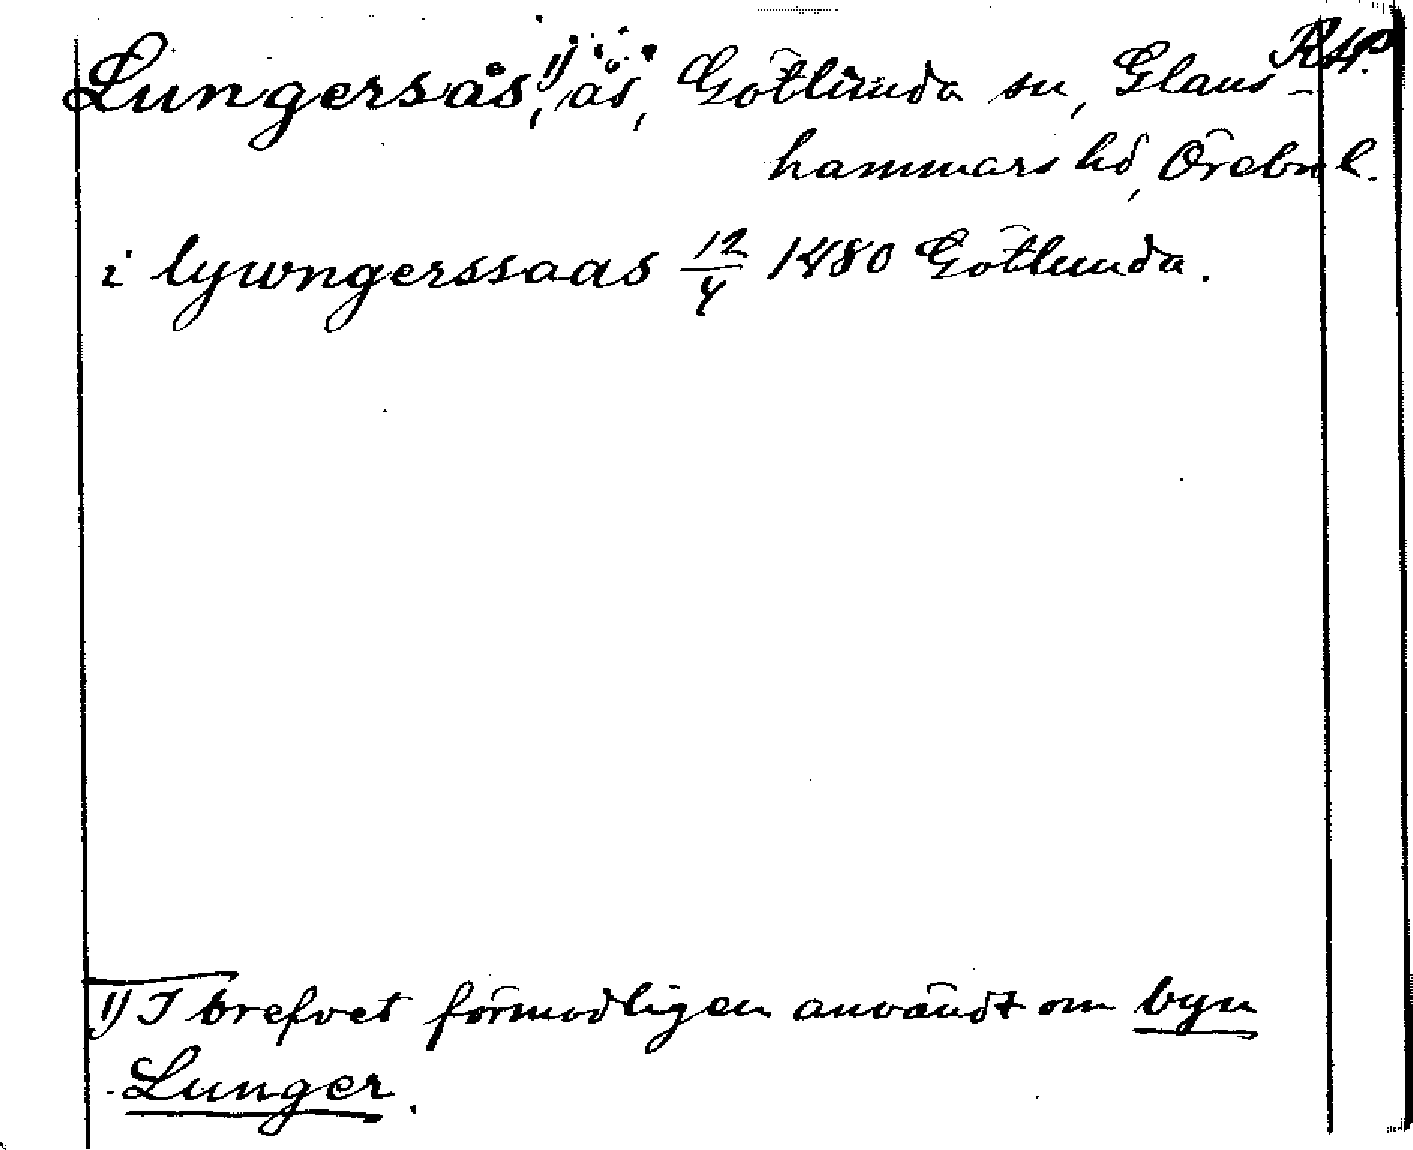 Lungersås,¹⁾ ås, Götlunda sn, Glans-
hammars hd, Örebro l.
i lywngerssaas 12/4 1480 Götlunda.
1) I brefvet förmodligen användt om byn
Lunger.